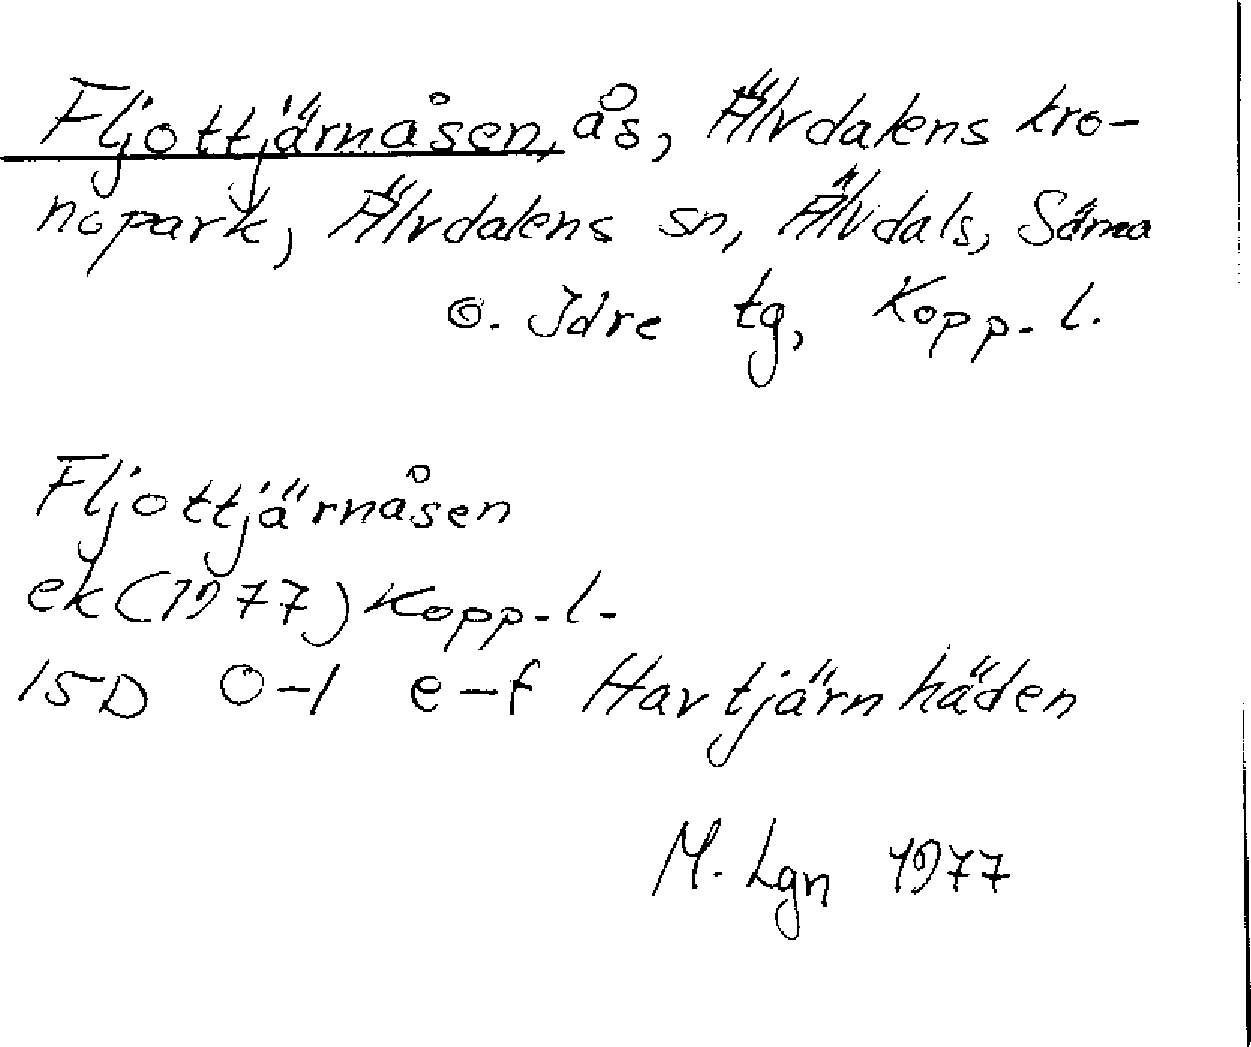 Fljottjärnåsen, ås, Älvdalens kro-
nopark, Älvdalens sn, Älvdals, Särna
o. Idre tg, Kopp. l.
Fljottjärnåsen
ek (1977) Kopp. l.
15D 0-1 e-f Havtjärnhäden
M. Lgn 1977